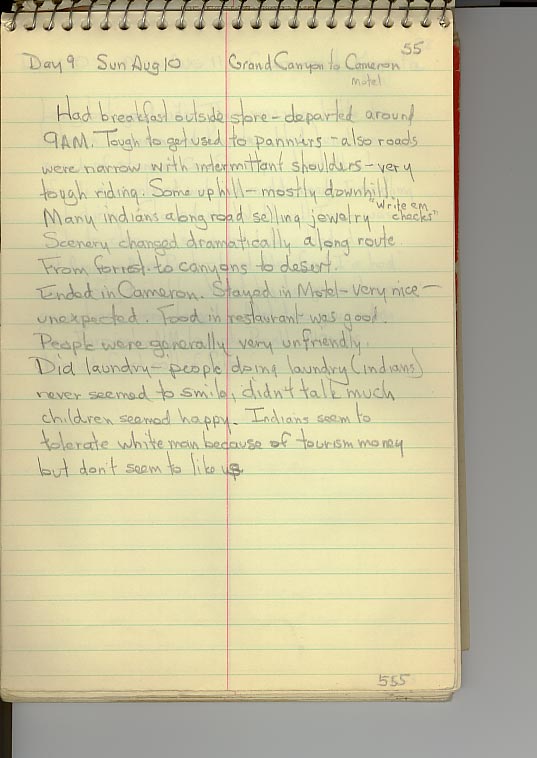 55
Day 9 Sun Aug 10 Grand Canyon to Cameron
motel
Had breakfast outside store - departed around
9AM. Tough to get used to panniers - also roads
were narrow with intermittant shoulders - very
tough riding. Some uphill - mostly downhill.
Many indians along road selling jewelry "Write em checks"
Scenery changed dramatically along route.
From forrest to canyons to desert.
Ended in Cameron. Stayed in Motel - very nice -
unexpected. Food in restaurant was good.
People were generally very unfriendly.
Did laundry - people doing laundry (indians)
never seemed to smile, didn't talk much
children seemed happy. Indians seem to
tolerate white man because of tourism money
but don't seem to like us
555